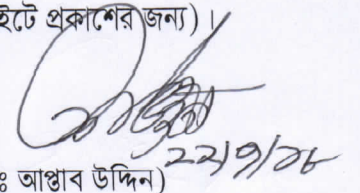 ইটে প্রকাশের জন্য)।
২২/৭/১৮
ঃ আপ্তাব উদ্দিন)